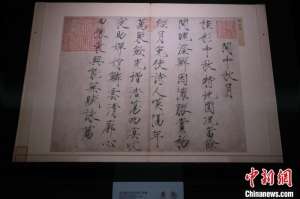 閏中秋月
桂彩中秋特地圓況當餘
閏魄澄鮮因懷勝賞初
經月免使詩人歎隔年
萬象斂光增浩蕩四溟收
夜助嬋娟鱗雲清廓心
田豫乘興能無賦詠篇
中新网